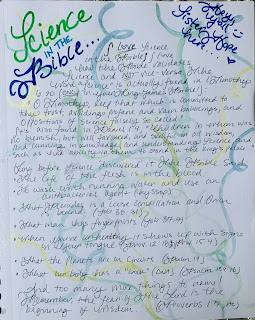 Science
IN THE
Bible...
Happy
Fall
Sister Hope
here...
I love Science
in the Bible! I love
how the Bible validates
Science and NOT vice-versa. The
word "science" is actually found in 1 Timothy
6:20 (only in your King James Bible):
"O Timothy, keep that which is committed to
thy trust, avoiding profane and vain babblings, and
oppositions of science falsely so called"
It is also found in Daniel 1:4, "Children in whom was
no blemish, but well favoured, and skilful in all wisdom,
and cunning in knowledge, and understanding science, and
such as had ability in them to stand in the king's palace
Long before science discovered it the Bible said:
• The life of the flesh is in the blood
• To wash with running water and use an
antibacterial agent (hyssop)
• That Pleiades is a loose constellation and Orion
is bound. (Job 38:31)
• That man has fingerprints (Job 37:7)
• When you're unhealthy, it shows up with signs
on your tongue
• That the Planets are on Circuits (Psalm 19)
• That our body has a
And too many more things to name!
Remember, the fear of the Lord is the
beginning of wisdom. (Proverbs